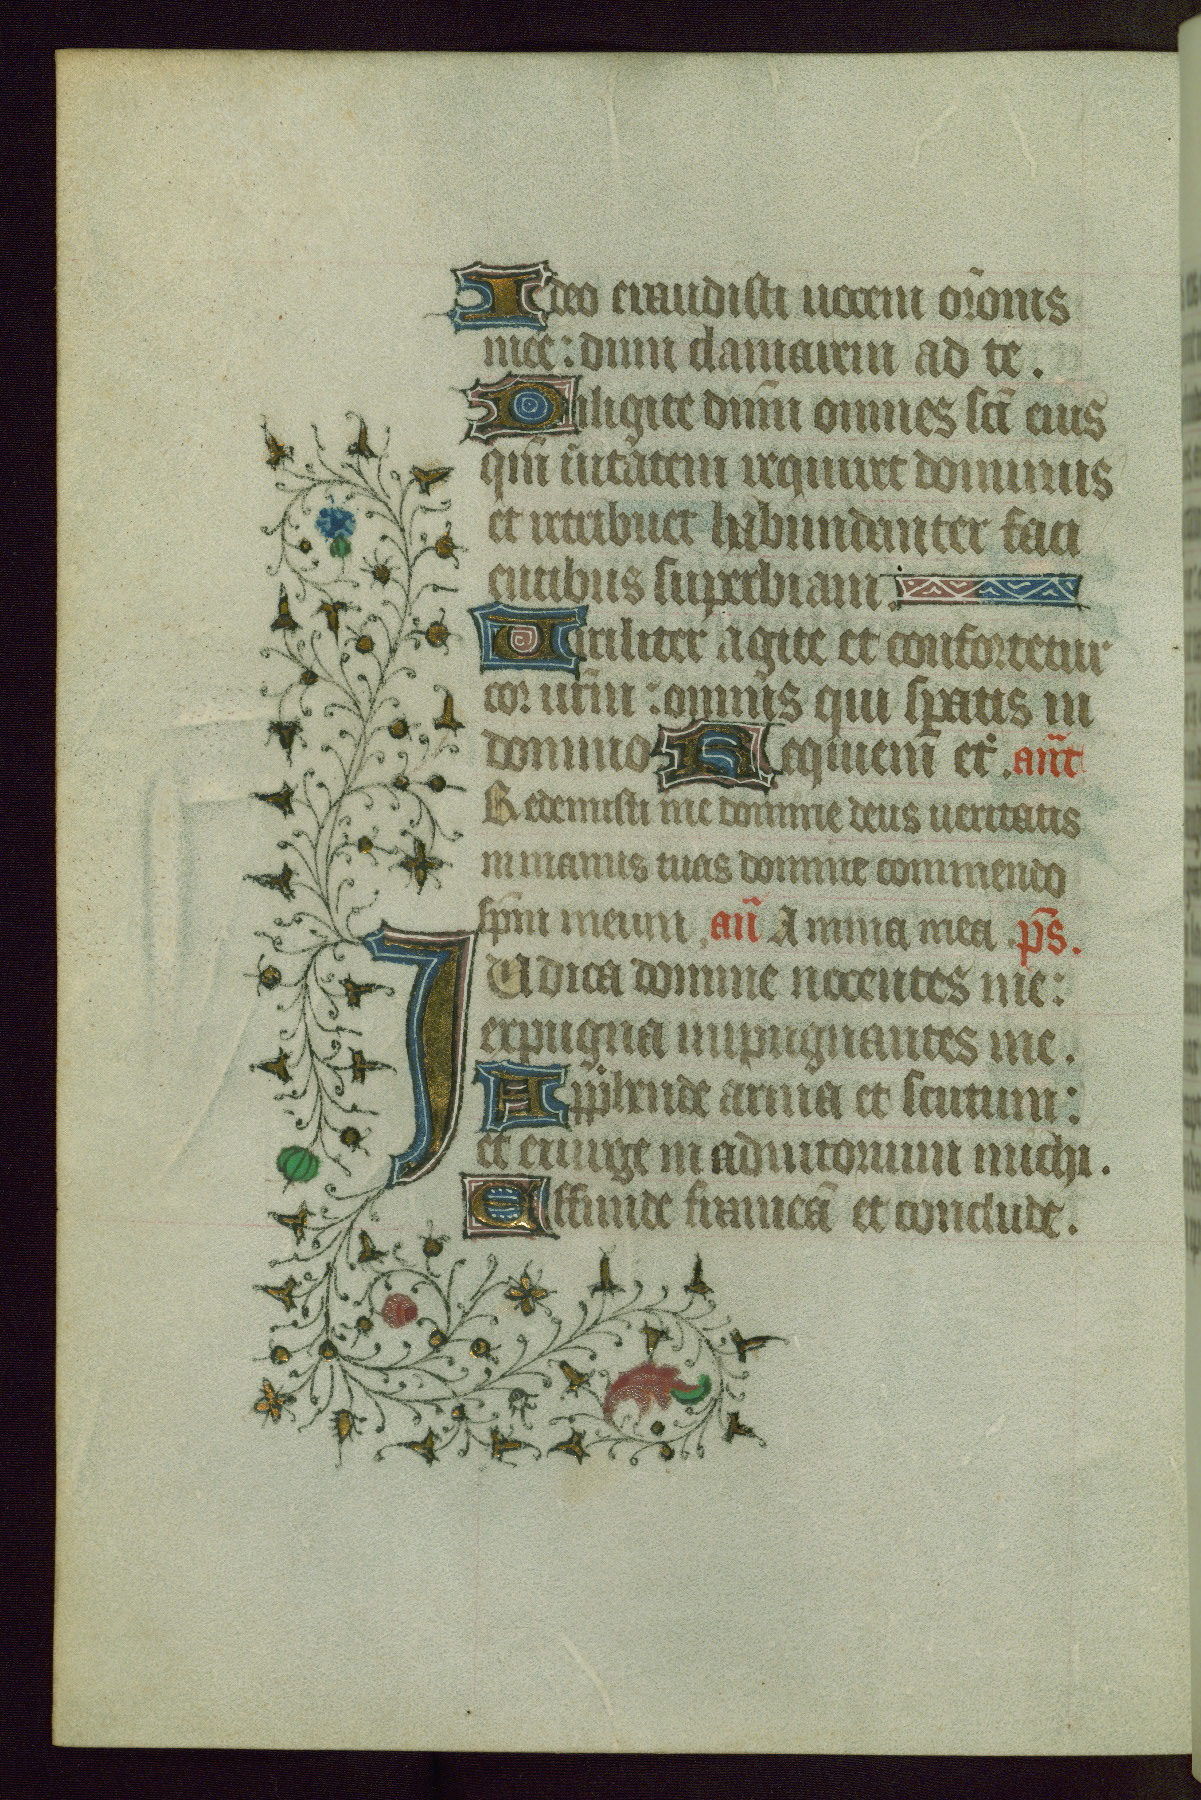 Ideo exaudisti uocem or̄onis
mee: dum clamarem ad te.
Diligite dn̄m omnes sc̄i eius
qm̄ ūitatem requiret dominus
et retribuet habundanter faci
entibus superbiam.
Uiriliter agite et confortetur
cor ur̄m: omn̄s qui sꝑatis in
domino Requiem et̾. an̄t
Redemisti me domine deus ueritatis
in manus tuas domine commendo
sp̄m meum. an̄ Anima mea. ps̄.
IUdica domine nocentes me:
expugna impugnantes me.
App̄hende arma et scutum:
et exurge in adiutorium michi.
Effunde frameā et conclude.